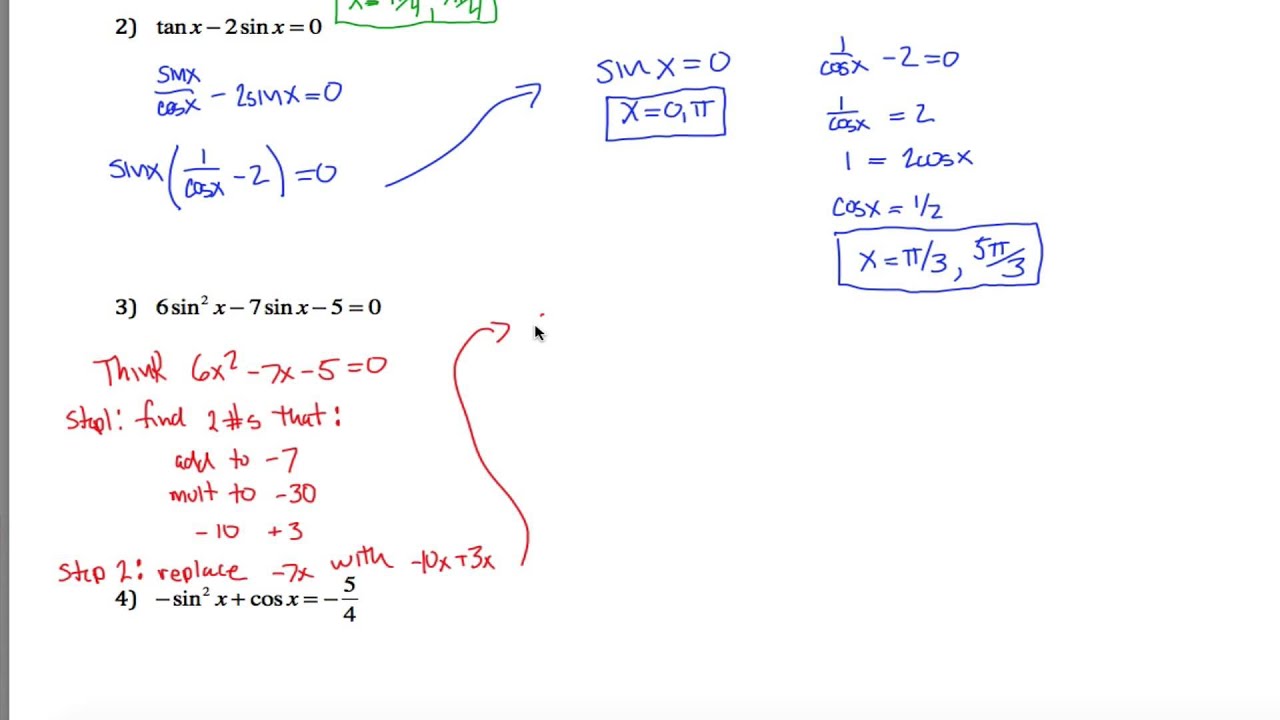 2) tan x − 2 sin x = 0
sinx/cosx − 2sinx = 0
sinx(1/cosx − 2) = 0
sin x = 0
x = 0, π
1/cosx − 2 = 0
1/cosx = 2
1 = 2cosx
cosx = 1/2
x = π/3, 5π/3
3) 6 sin² x − 7 sin x − 5 = 0
Think 6x² − 7x − 5 = 0
Step1: find 2 #s that:
add to −7
mult to −30
−10 +3
Step 2: replace −7x with −10x+3x
4) −sin² x + cos x = −5/4